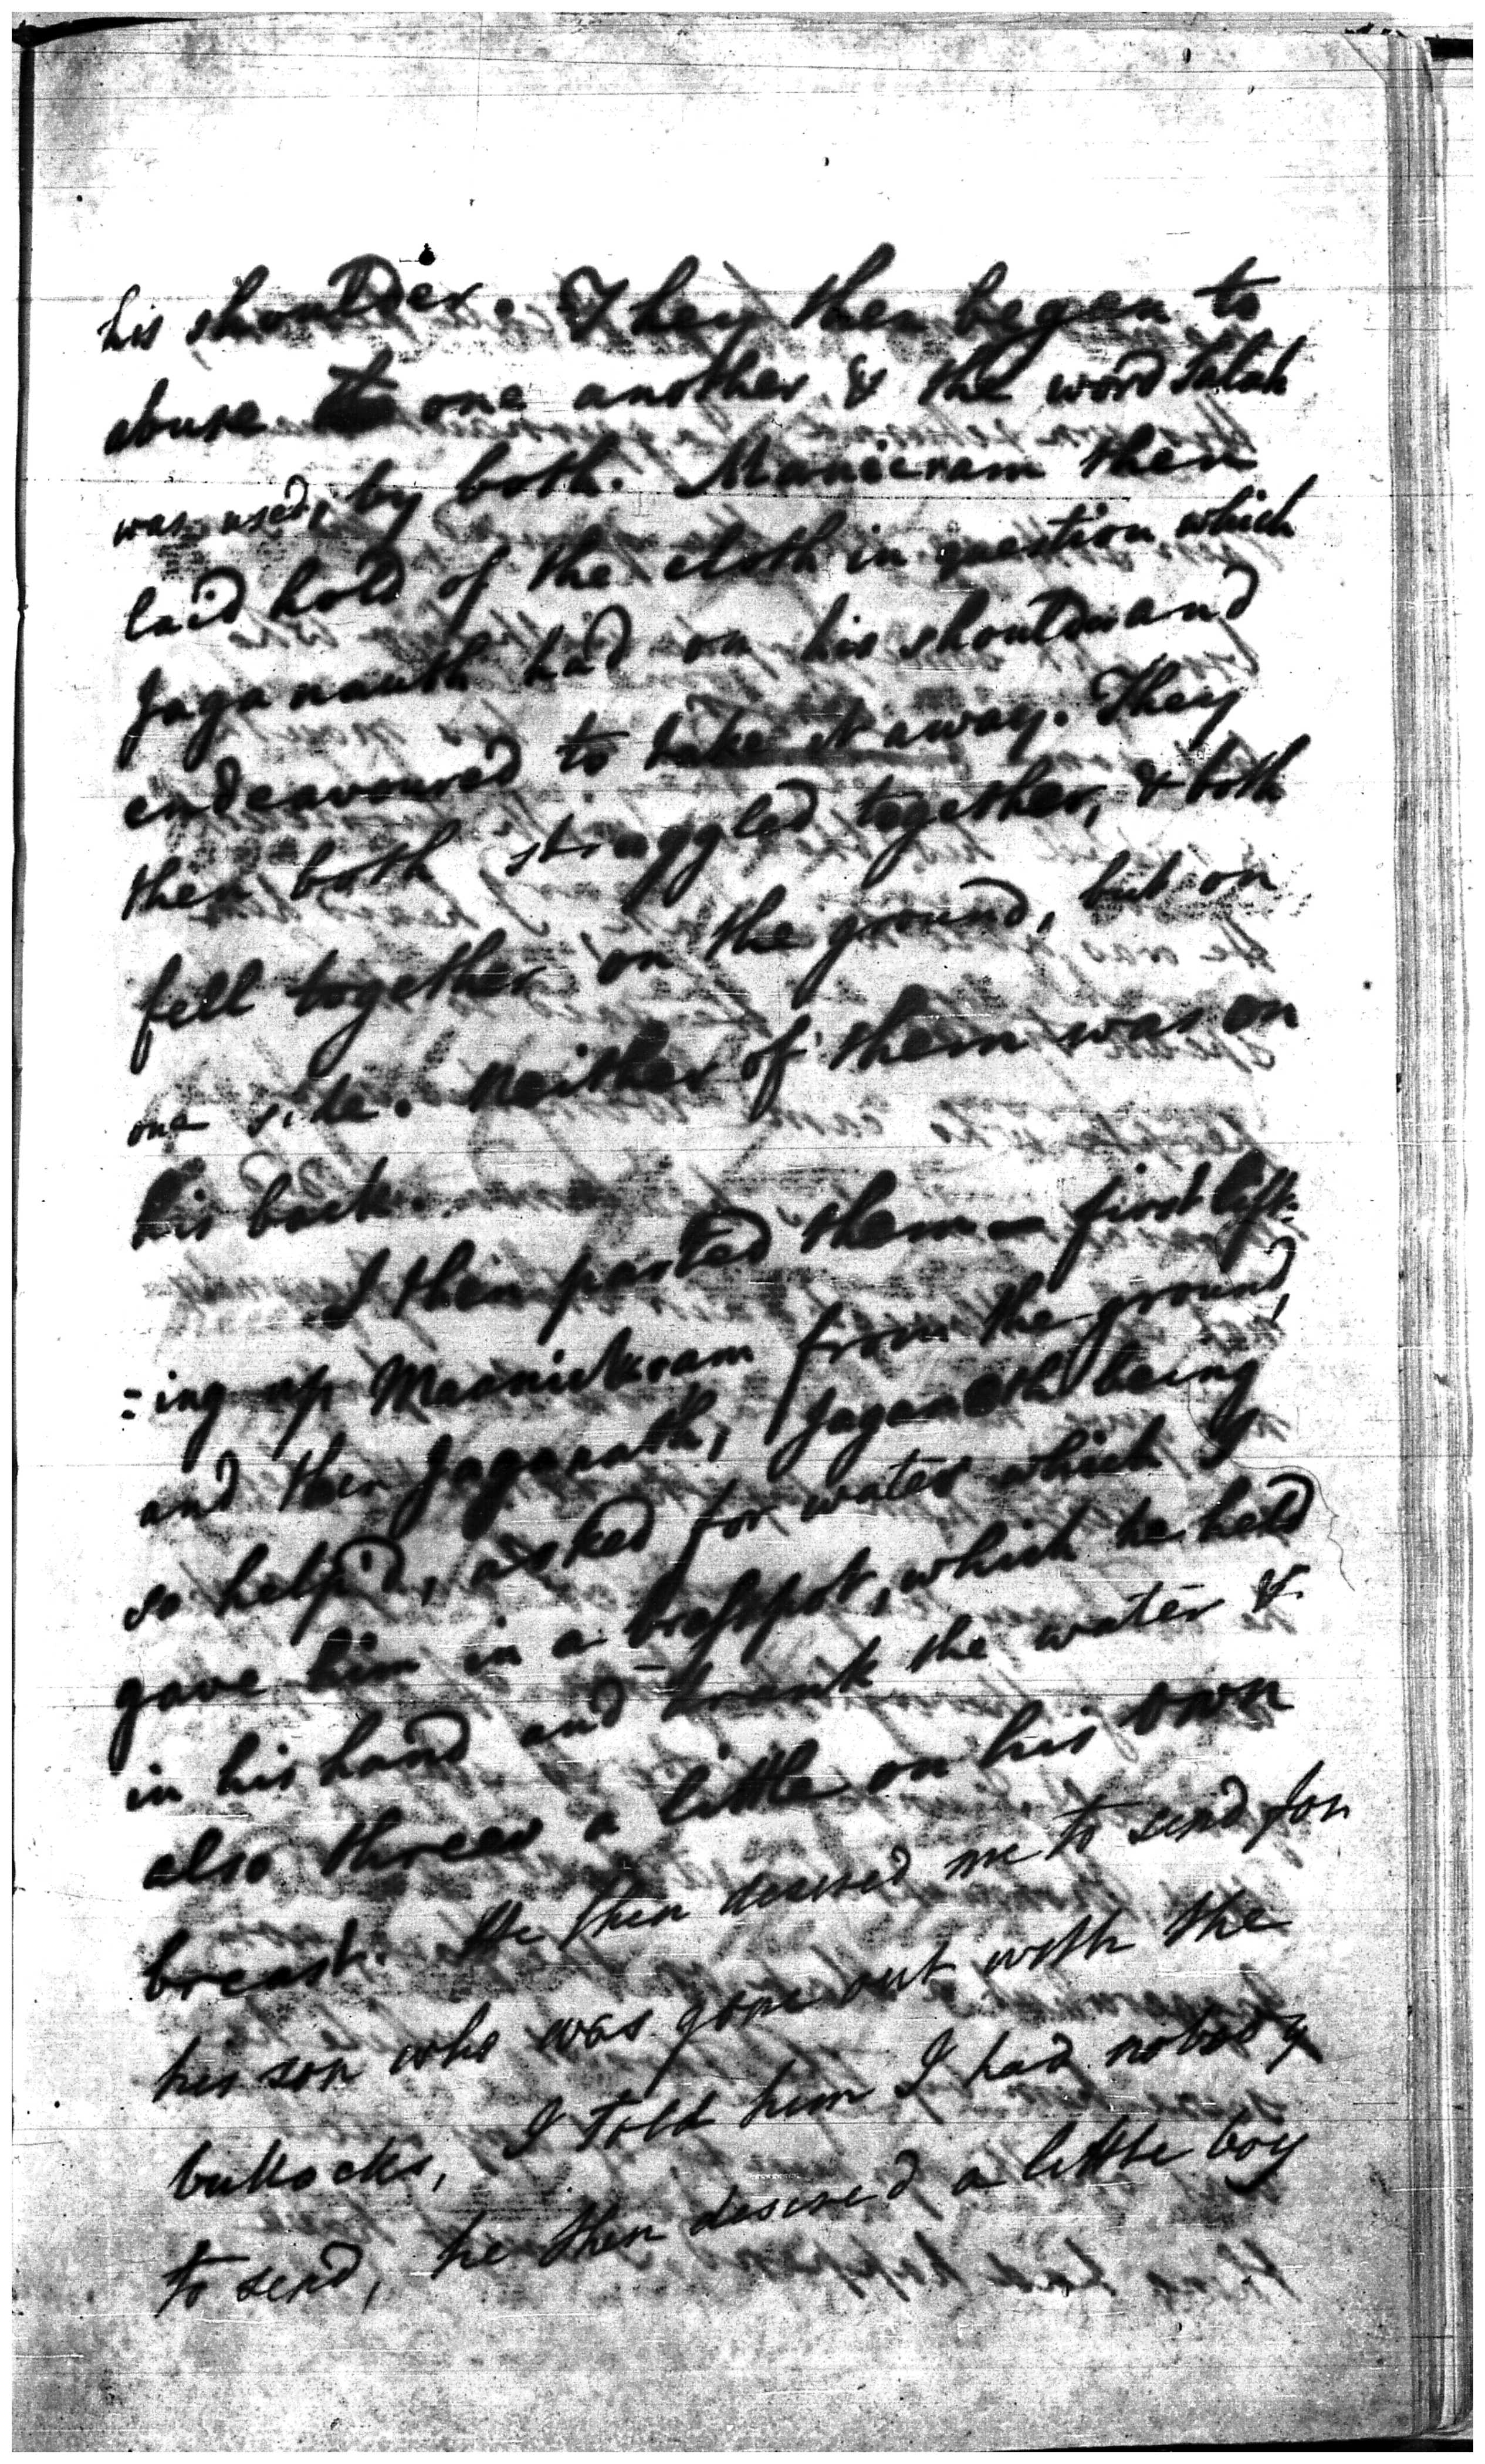 his shoulder. They then began to
abuse one another & the word Salah
was used, by both. Manicram then
laid hold of the cloth in question which
Jaganauth had on his shoulder and
endeavoured to take it away. They
then both struggled together, & both
fell together on the ground, but on
one side. Neither of them was on
his back.
I then parted them – first lift:
:ing up Mannickram from the ground,
and then Jaganath, Jaganoth being
so help'd, asked for water which I
gave him in a brasspot, which he held
in his hand and drank the water &
also threw a little on his own
breast. He then desired me to send for
his son who was gone out with the
bullocks, I told him I had nobody
to send, he then desired a little boy